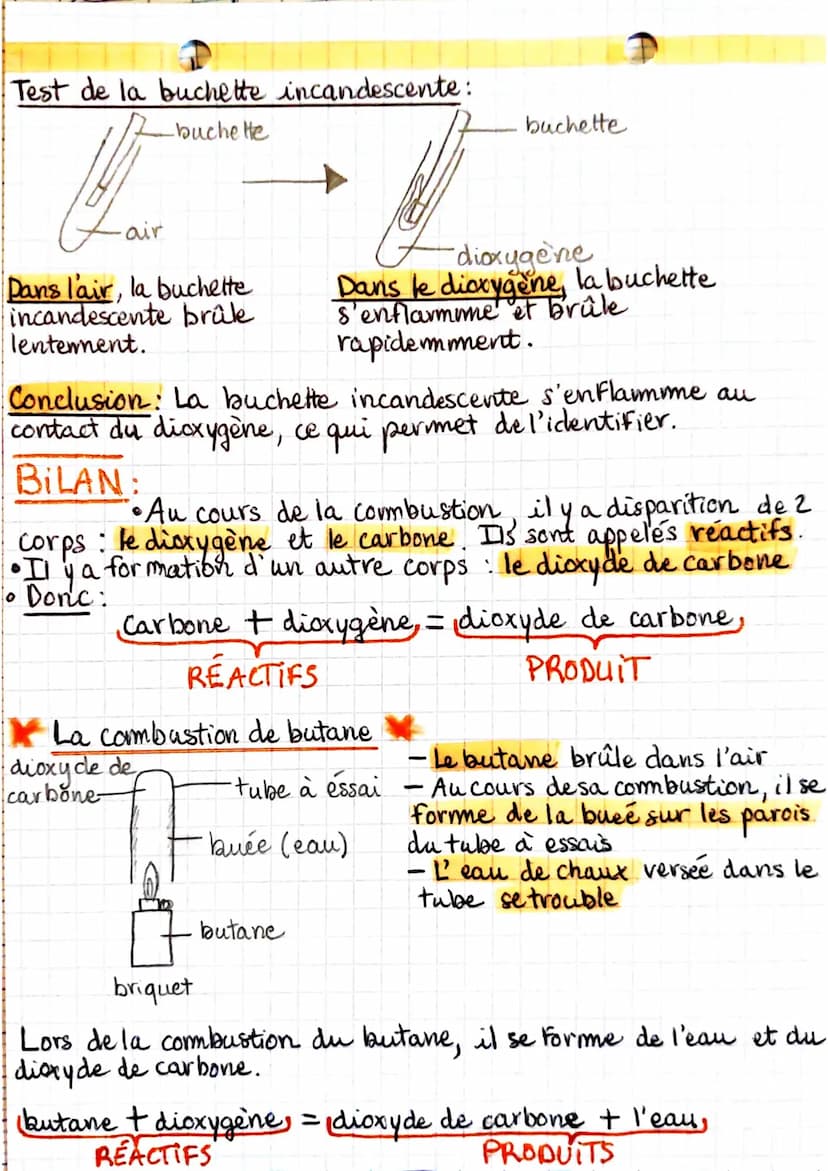 Test de la buchette incandescente :
buchette
buchette
air
dioxygène
Dans l'air, la buchette
incandescente brûle
lentement.
Dans le dioxygène, la buchette
s'enflamme et brûle
rapidemment.
Conclusion : La buchette incandescente s'enflamme au
contact du dioxygène, ce qui permet de l'identifier.
BILAN :
• Au cours de la combustion, il y a disparition de 2
corps : le dioxygène et le carbone. Ils sont appelés réactifs.
• Il y a formation d'un autre corps : le dioxyde de carbone
• Donc :
carbone + dioxygène = dioxyde de carbone
RÉACTIFS
PRODUIT
La combustion de butane
dioxyde de
carbone
tube à éssai
buée (eau)
butane
briquet
- Le butane brûle dans l'air
- Au cours de sa combustion, il se
forme de la bueé sur les parois
du tube à essais
- L'eau de chaux versée dans le
tube se trouble
Lors de la combustion du butane, il se forme de l'eau et du
dioxyde de carbone.
butane + dioxygène = dioxyde de carbone + l'eau
RÉACTIFS
PRODUITS